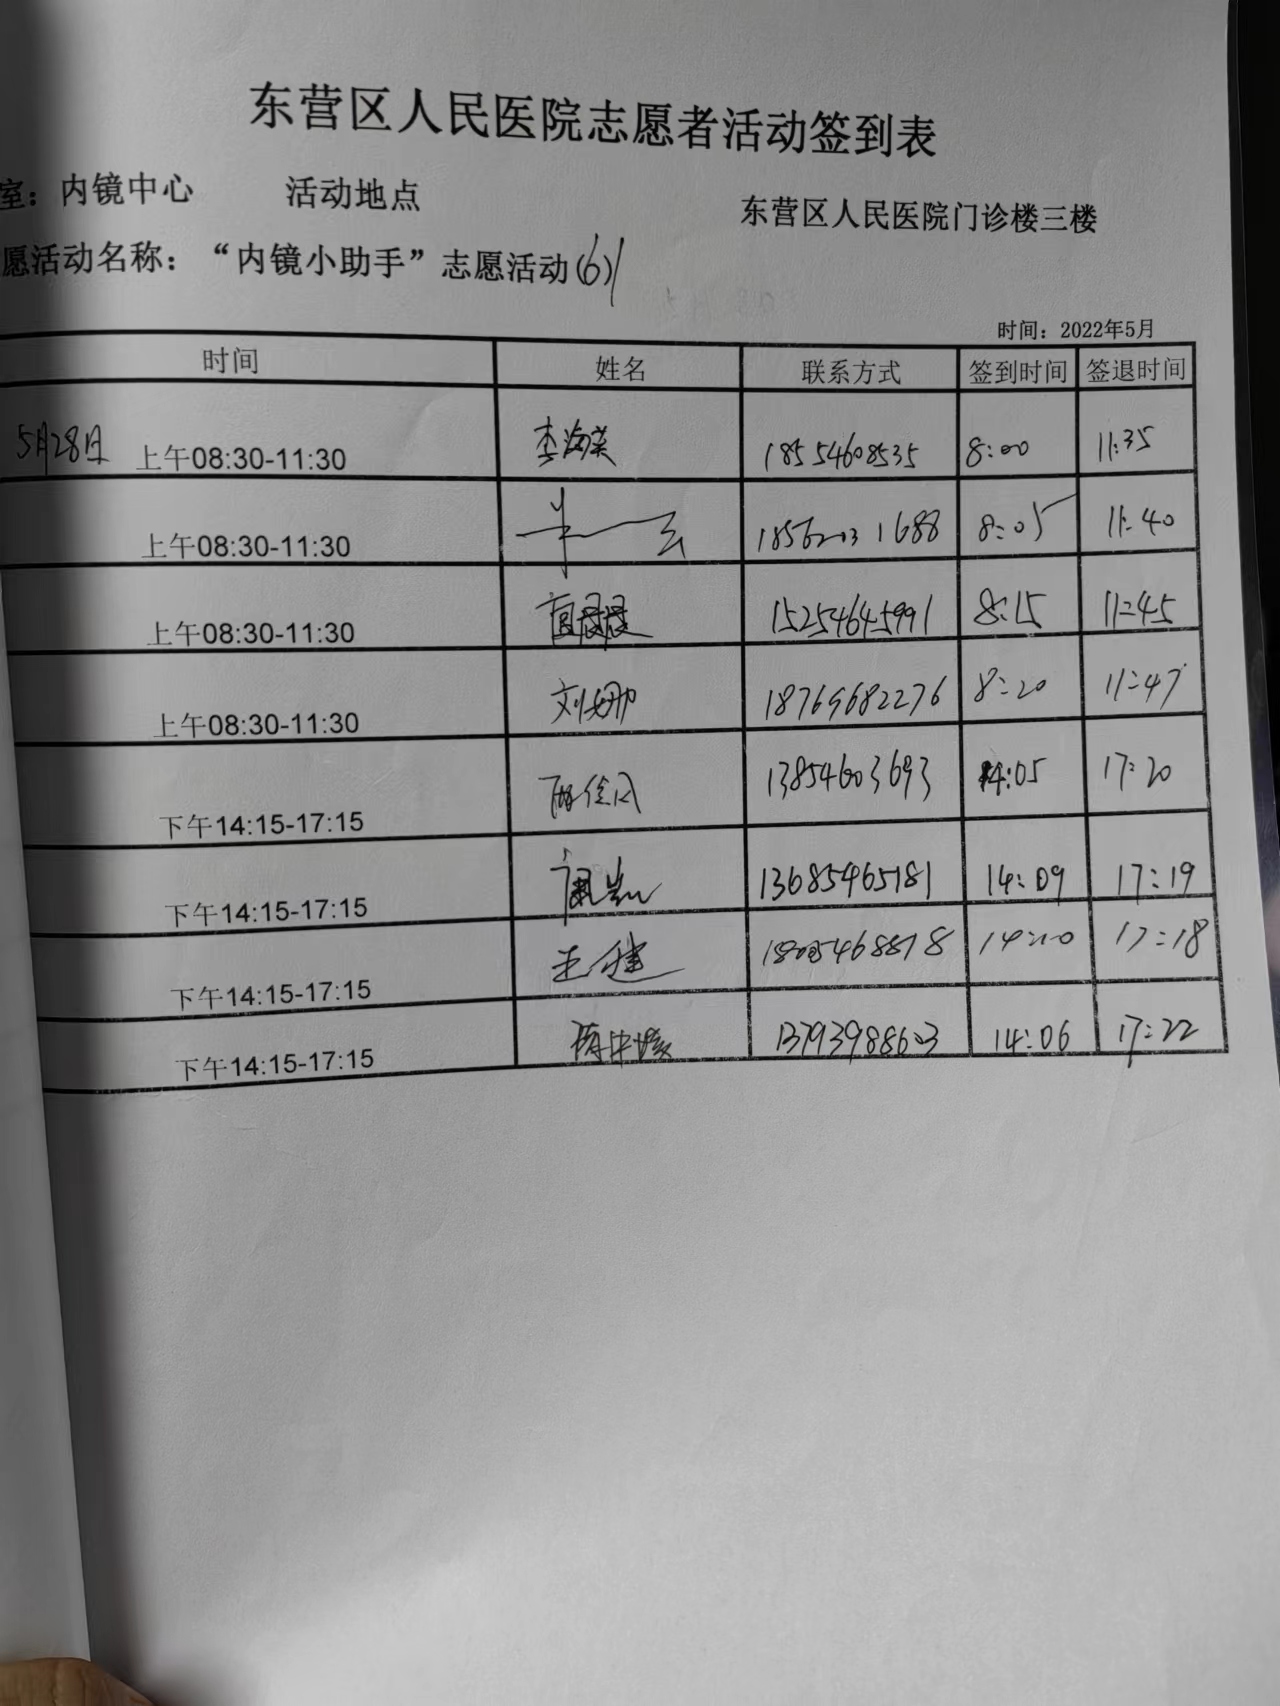 东营区人民医院志愿者活动签到表
室：内镜中心 活动地点 东营区人民医院门诊楼三楼
愿活动名称：“内镜小助手”志愿活动(6)
时间：2022年5月
时间 姓名 联系方式 签到时间 签退时间
5月28日 上午08:30-11:30 李海英 18554608535 8:00 11:35
上午08:30-11:30 18562031688 8:05 11:40
上午08:30-11:30 15254645991 8:15 11:45
上午08:30-11:30 刘娜 18769682276 8:20 11:47
下午14:15-17:15 13854603693 14:05 17:20
下午14:15-17:15 13685465181 14:09 17:19
下午14:15-17:15 王健 14:10 17:18
下午14:15-17:15 13793988603 14:06 17:22